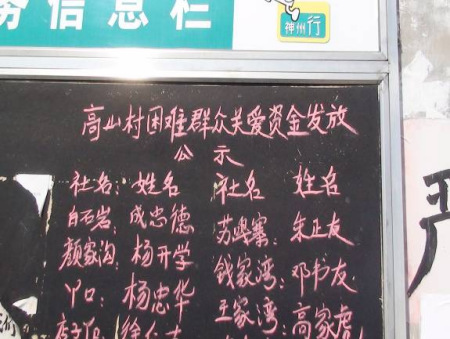 务信息栏
神州行
高山村困难群众关爱资金发放
公示
社名: 姓名 社名: 姓名
白石岩: 成忠德 苏 寨: 朱正友
颜家沟: 杨开学 钱家湾: 邓书友
丫口: 杨忠华 王家湾: 高家
严